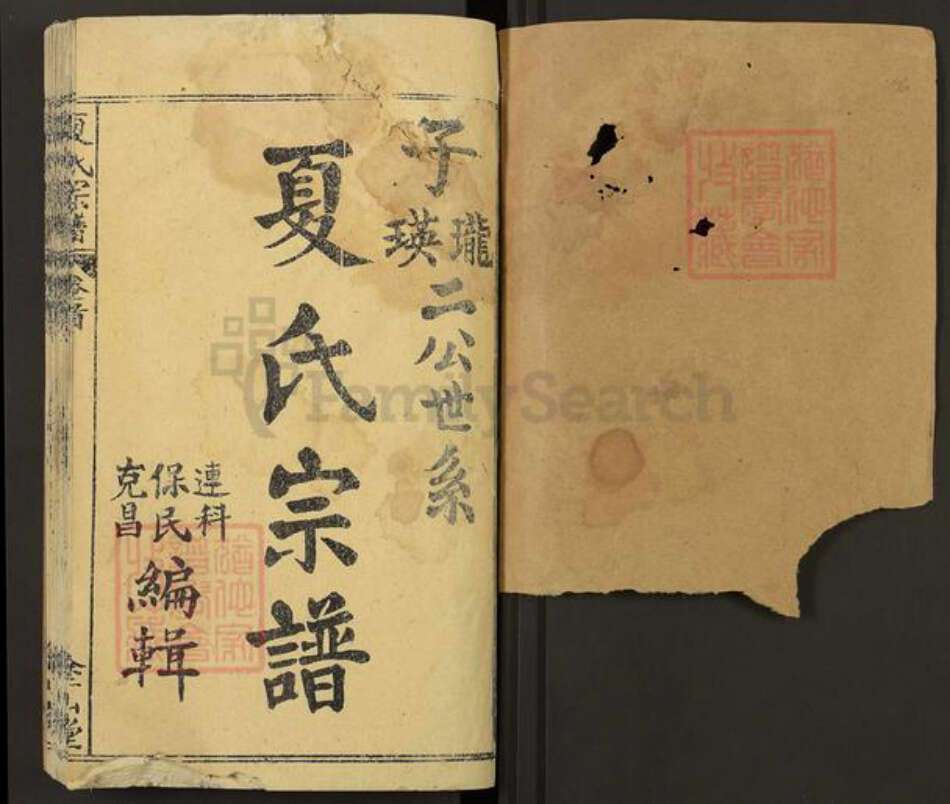 子瓏瑛二公世系
夏氏宗譜
連科
保民
克昌
編輯
夏氏宗譜
卷首
FamilySearch